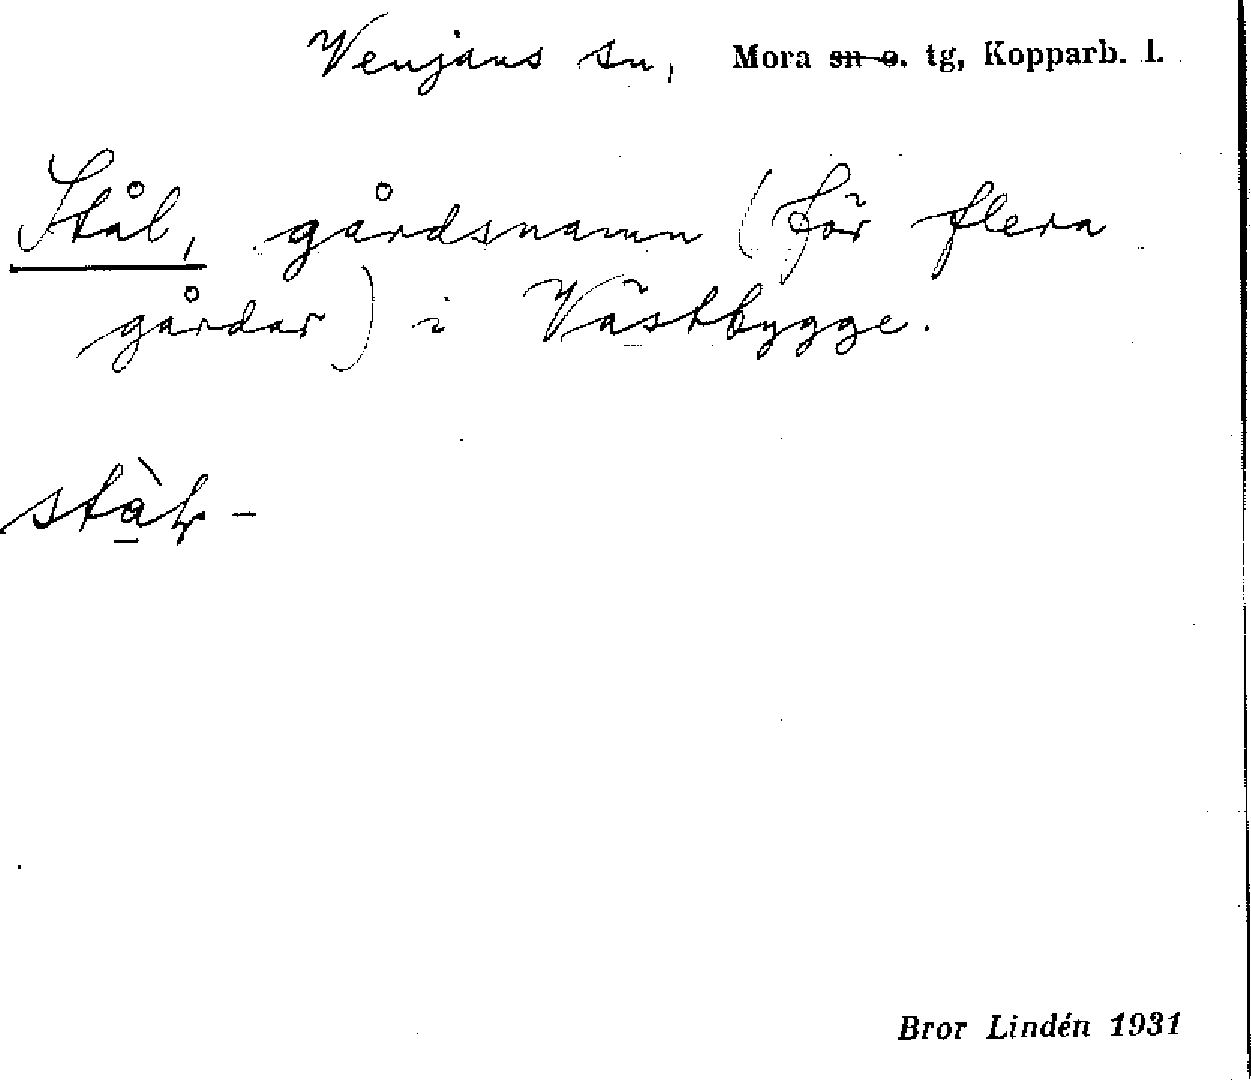 Venjans sn, Mora sn o. tg, Kopparb. l.
Stål, gårdsnamn (för flera
gårdar) i Västbygge.
Bror Lindén 1931